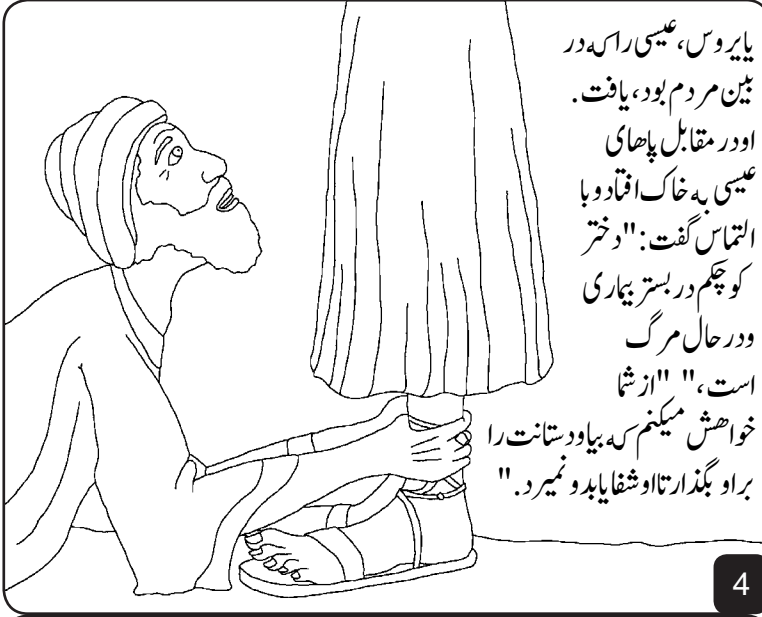 یایروس، عیسی را که در
بین مردم بود، یافت.
او در مقابل پاهای
عیسی به خاک افتاد و با
التماس گفت: "دختر
کوچکم در بستر بیماری
و در حال مرگ
است،" "از شما
خواهش میکنم که بیا و دستانت را
بر او بگذار تا او شفا یابد و نمیرد."
4